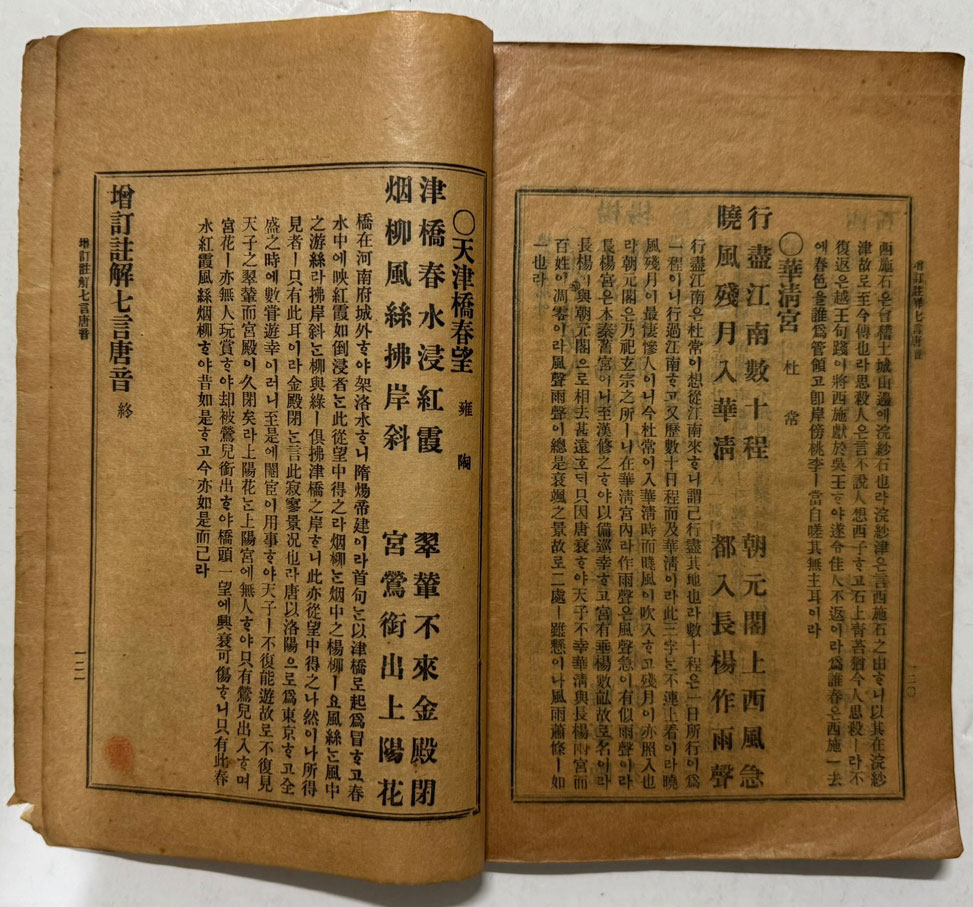 增訂註解七言唐音
一二〇
西施石은在會稽土城山邊에浣紗石也라浣紗津은言西施石之由ᄒᆞ니以其在浣紗
津故로至今傳也라思殺人은言不說人想西子ᄒᆞ고石上靑苔猶今人思殺ㅣ라不
復返은越王句踐이將西施獻於吳王ᄒᆞ야遂令佳人不返이라爲誰春은西施一去
에春色을誰爲管領고卽岸傍桃李ㅣ當自嗟其無主耳이라
○華淸宮 杜常
行盡江南數十程 朝元閣上西風急
曉風殘月入華淸 都入長楊作雨聲
行盡江南은杜常이想從江南來ᄒᆞ니謂己行盡其地也라數十程은一日所行이爲
一程이니行過江南ᄒᆞ고又歷數十日程而及華淸이라此三字ᄂᆞᆫ不連上看이라曉
風殘月이最悽慘人이니今杜常이入華淸時而曉風이吹入ᄒᆞ고殘月이亦照入也
라朝元閣은乃祀玄宗之所ㅣ니在華淸宮內라作雨聲은風聲急이有似雨聲이라
長楊宮은本秦舊宮이니至漢修之ᄒᆞ야以備巡幸ᄒᆞ고宮有垂楊數畝故로名이라
長楊이與朝元閣으로相去甚遠호ᄃᆡ只因唐衰ᄒᆞ야天子不幸華淸與長楊兩宮而
百姓이凋零이라風聲雨聲이總是衰颯之景故로二處ㅣ雖懸이나風雨蕭條ㅣ如
一也라
○天津橋春望 雍陶
津橋春水浸紅霞 翠輦不來金殿閉
烟柳風絲拂岸斜 宮鶯銜出上陽花
橋在河南府城外ᄒᆞ야架洛水ᄒᆞ니隋煬帝建이라首句ᄂᆞᆫ以津橋로起爲冒ᄒᆞ고春
水中에映紅霞如倒浸者ᄂᆞᆫ此從望中得之라烟柳ᄂᆞᆫ烟中之楊柳ㅣ오風絲ᄂᆞᆫ風中
之游絲라拂岸斜ᄂᆞᆫ柳與綠ㅣ俱拂津橋之岸ᄒᆞ니此亦從望中得之나然이나所得
見者ㅣ只有此耳이라金殿閉ᄂᆞᆫ言此寂寥景况也라唐以洛陽으로爲東京ᄒᆞ고全
盛之時에數甞遊幸이러니至是에閹宦이用事ᄒᆞ야天子ㅣ不復能遊故로不復見
天子之翠輦而宮殿이久閉矣라上陽花ᄂᆞᆫ上陽宮에無人ᄒᆞ야只有鶯兒出入ᄒᆞ며
宮花ㅣ亦無人玩賞ᄒᆞ야却被鶯兒銜出ᄒᆞ야橋頭一望에興衰可傷ᄒᆞ니只有此春
水紅霞風絲烟柳ᄒᆞ야昔如是ᄒᆞ고今亦如是而己라
增訂註解七言唐音 終
增訂註解七言唐音
一二一